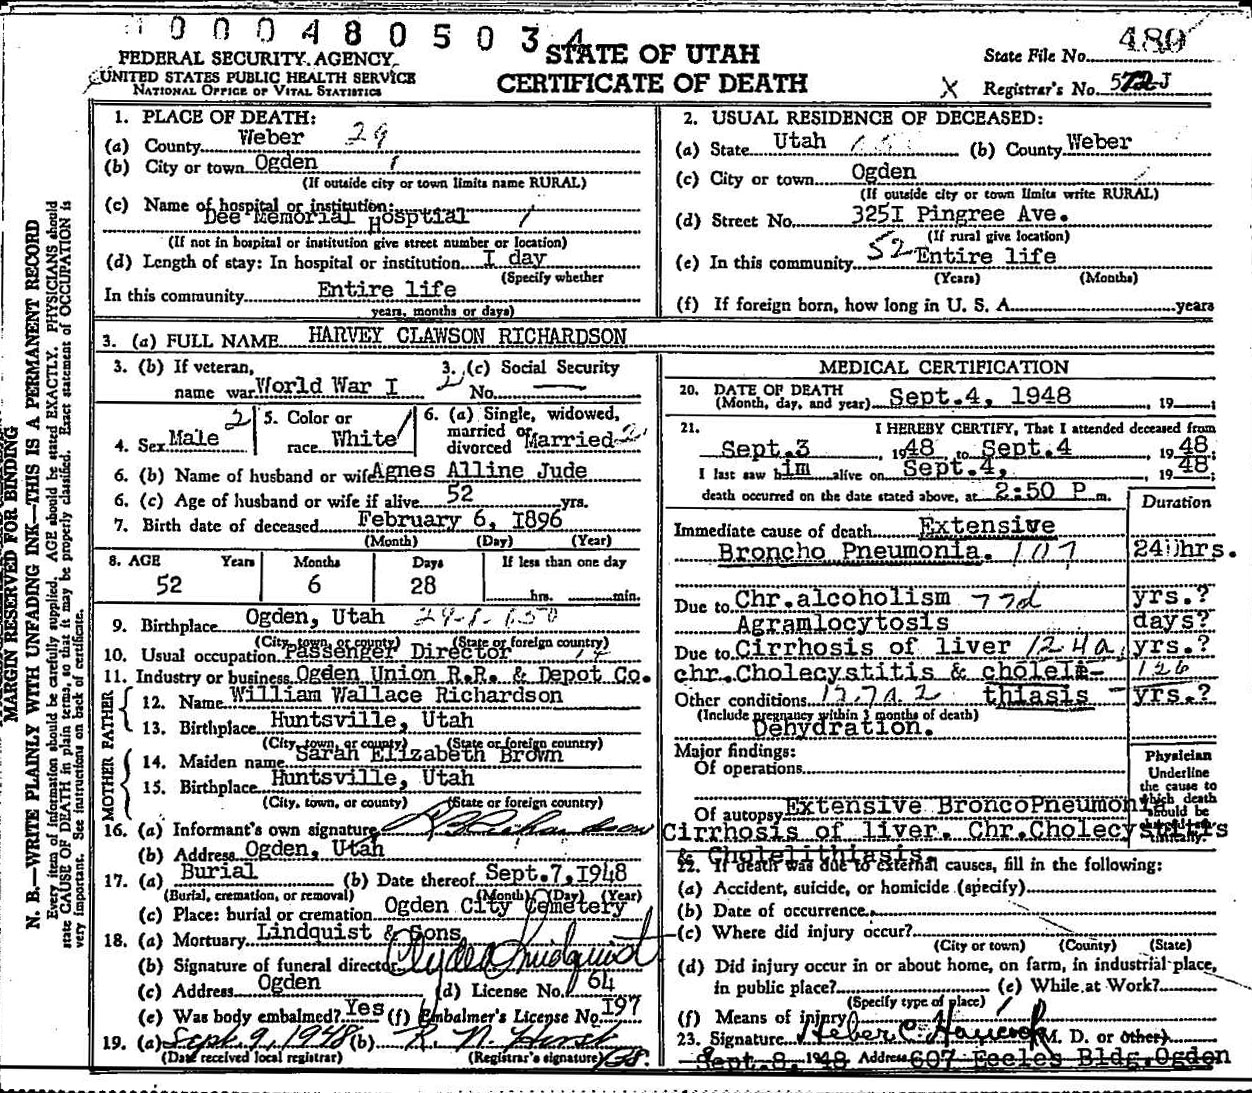 0004805034
FEDERAL SECURITY AGENCY
UNITED STATES PUBLIC HEALTH SERVICE
NATIONAL OFFICE OF VITAL STATISTICS
STATE OF UTAH
CERTIFICATE OF DEATH
State File No. 480
X Registrar's No. 572-J
MARGIN RESERVED FOR BINDING
N. B.—WRITE PLAINLY WITH UNFADING INK—THIS IS A PERMANENT RECORD
Every item of information should be carefully supplied. AGE should be stated EXACTLY. PHYSICIANS should
state CAUSE OF DEATH in plain terms, so that it may be properly classified. Exact statement of OCCUPATION is
very important. See instructions on back of certificate.
1. PLACE OF DEATH:
(a) County Weber 29
(b) City or town Ogden 1
(If outside city or town limits name RURAL)
(c) Name of hospital or institution:
Dee Memorial Hosptial 1
(If not in hospital or institution give street number or location)
(d) Length of stay: In hospital or institution I day
(Specify whether
In this community Entire life
years, months or days)
2. USUAL RESIDENCE OF DECEASED:
(a) State Utah (b) County Weber
(c) City or town Ogden
(If outside city or town limits write RURAL)
(d) Street No. 325I Pingree Ave.
(If rural give location)
(e) In this community 52 Entire life
(Years) (Months)
(f) If foreign born, how long in U. S. A. years
3. (a) FULL NAME HARVEY CLAWSON RICHARDSON
3. (b) If veteran,
name war World War I 2
3. (c) Social Security
No. —
4. Sex Male 2
5. Color or
race White 1
6. (a) Single, widowed,
married or
divorced Married 2
6. (b) Name of husband or wife Agnes Alline Jude
6. (c) Age of husband or wife if alive 52 yrs.
7. Birth date of deceased February 6, I896
(Month) (Day) (Year)
8. AGE Years Months Days If less than one day
52 6 28 hrs. min.
9. Birthplace Ogden, Utah
(City, town, or county) (State or foreign country)
10. Usual occupation Passenger Director
11. Industry or business Ogden Union R.R. & Depot Co.
FATHER
12. Name William Wallace Richardson
13. Birthplace Huntsville, Utah
(City, town, or county) (State or foreign country)
MOTHER
14. Maiden name Sarah Elizabeth Brown
15. Birthplace Huntsville, Utah
(City, town, or county) (State or foreign country)
16. (a) Informant's own signature Richardson
(b) Address Ogden, Utah
17. (a) Burial (b) Date thereof Sept.7,I948
(Burial, cremation, or removal) (Month) (Day) (Year)
(c) Place: burial or cremation Ogden City Cemetery
18. (a) Mortuary Lindquist & Sons
(b) Signature of funeral director Clyde Lindquist
(c) Address Ogden (d) License No. 64
(e) Was body embalmed? Yes (f) Embalmer's License No. I97
19. (a) Sept. 9, 1948 (b) R. N. Hirst
(Date received local registrar) (Registrar's signature)
MEDICAL CERTIFICATION
20. DATE OF DEATH
(Month, day, and year) Sept.4, 1948, 19 ;
21. I HEREBY CERTIFY, That I attended deceased from
Sept.3, 1948 to Sept.4 1948;
I last saw him alive on Sept.4, 1948;
death occurred on the date stated above, at 2:50 P m.
Duration
Immediate cause of death Extensive
Broncho Pneumonia. 107 24 hrs.
Due to Chr.alcoholism 77d yrs.?
Agramlocytosis days?
Due to Cirrhosis of liver 124a, yrs.?
chr.Cholecystitis & choleli- 126
Other conditions 127a.2 thiasis - yrs.?
(Include pregnancy within 3 months of death)
Dehydration.
Major findings:
Of operations
Physician
Underline
the cause to
which death
should be
Of autopsy Extensive BroncoPneumonia
Cirrhosis of liver. Chr.Cholecystitis
& Cholelithiasis.
22. If death was due to external causes, fill in the following:
(a) Accident, suicide, or homicide (specify)
(b) Date of occurrence
(c) Where did injury occur?
(City or town) (County) (State)
(d) Did injury occur in or about home, on farm, in industrial place,
in public place? (e) While at Work?
(Specify type of place)
(f) Means of injury
23. Signature Heber C. Hancock (M. D. or other)
Sept.8, 1948 Address 607 Eccles Bldg.Ogden